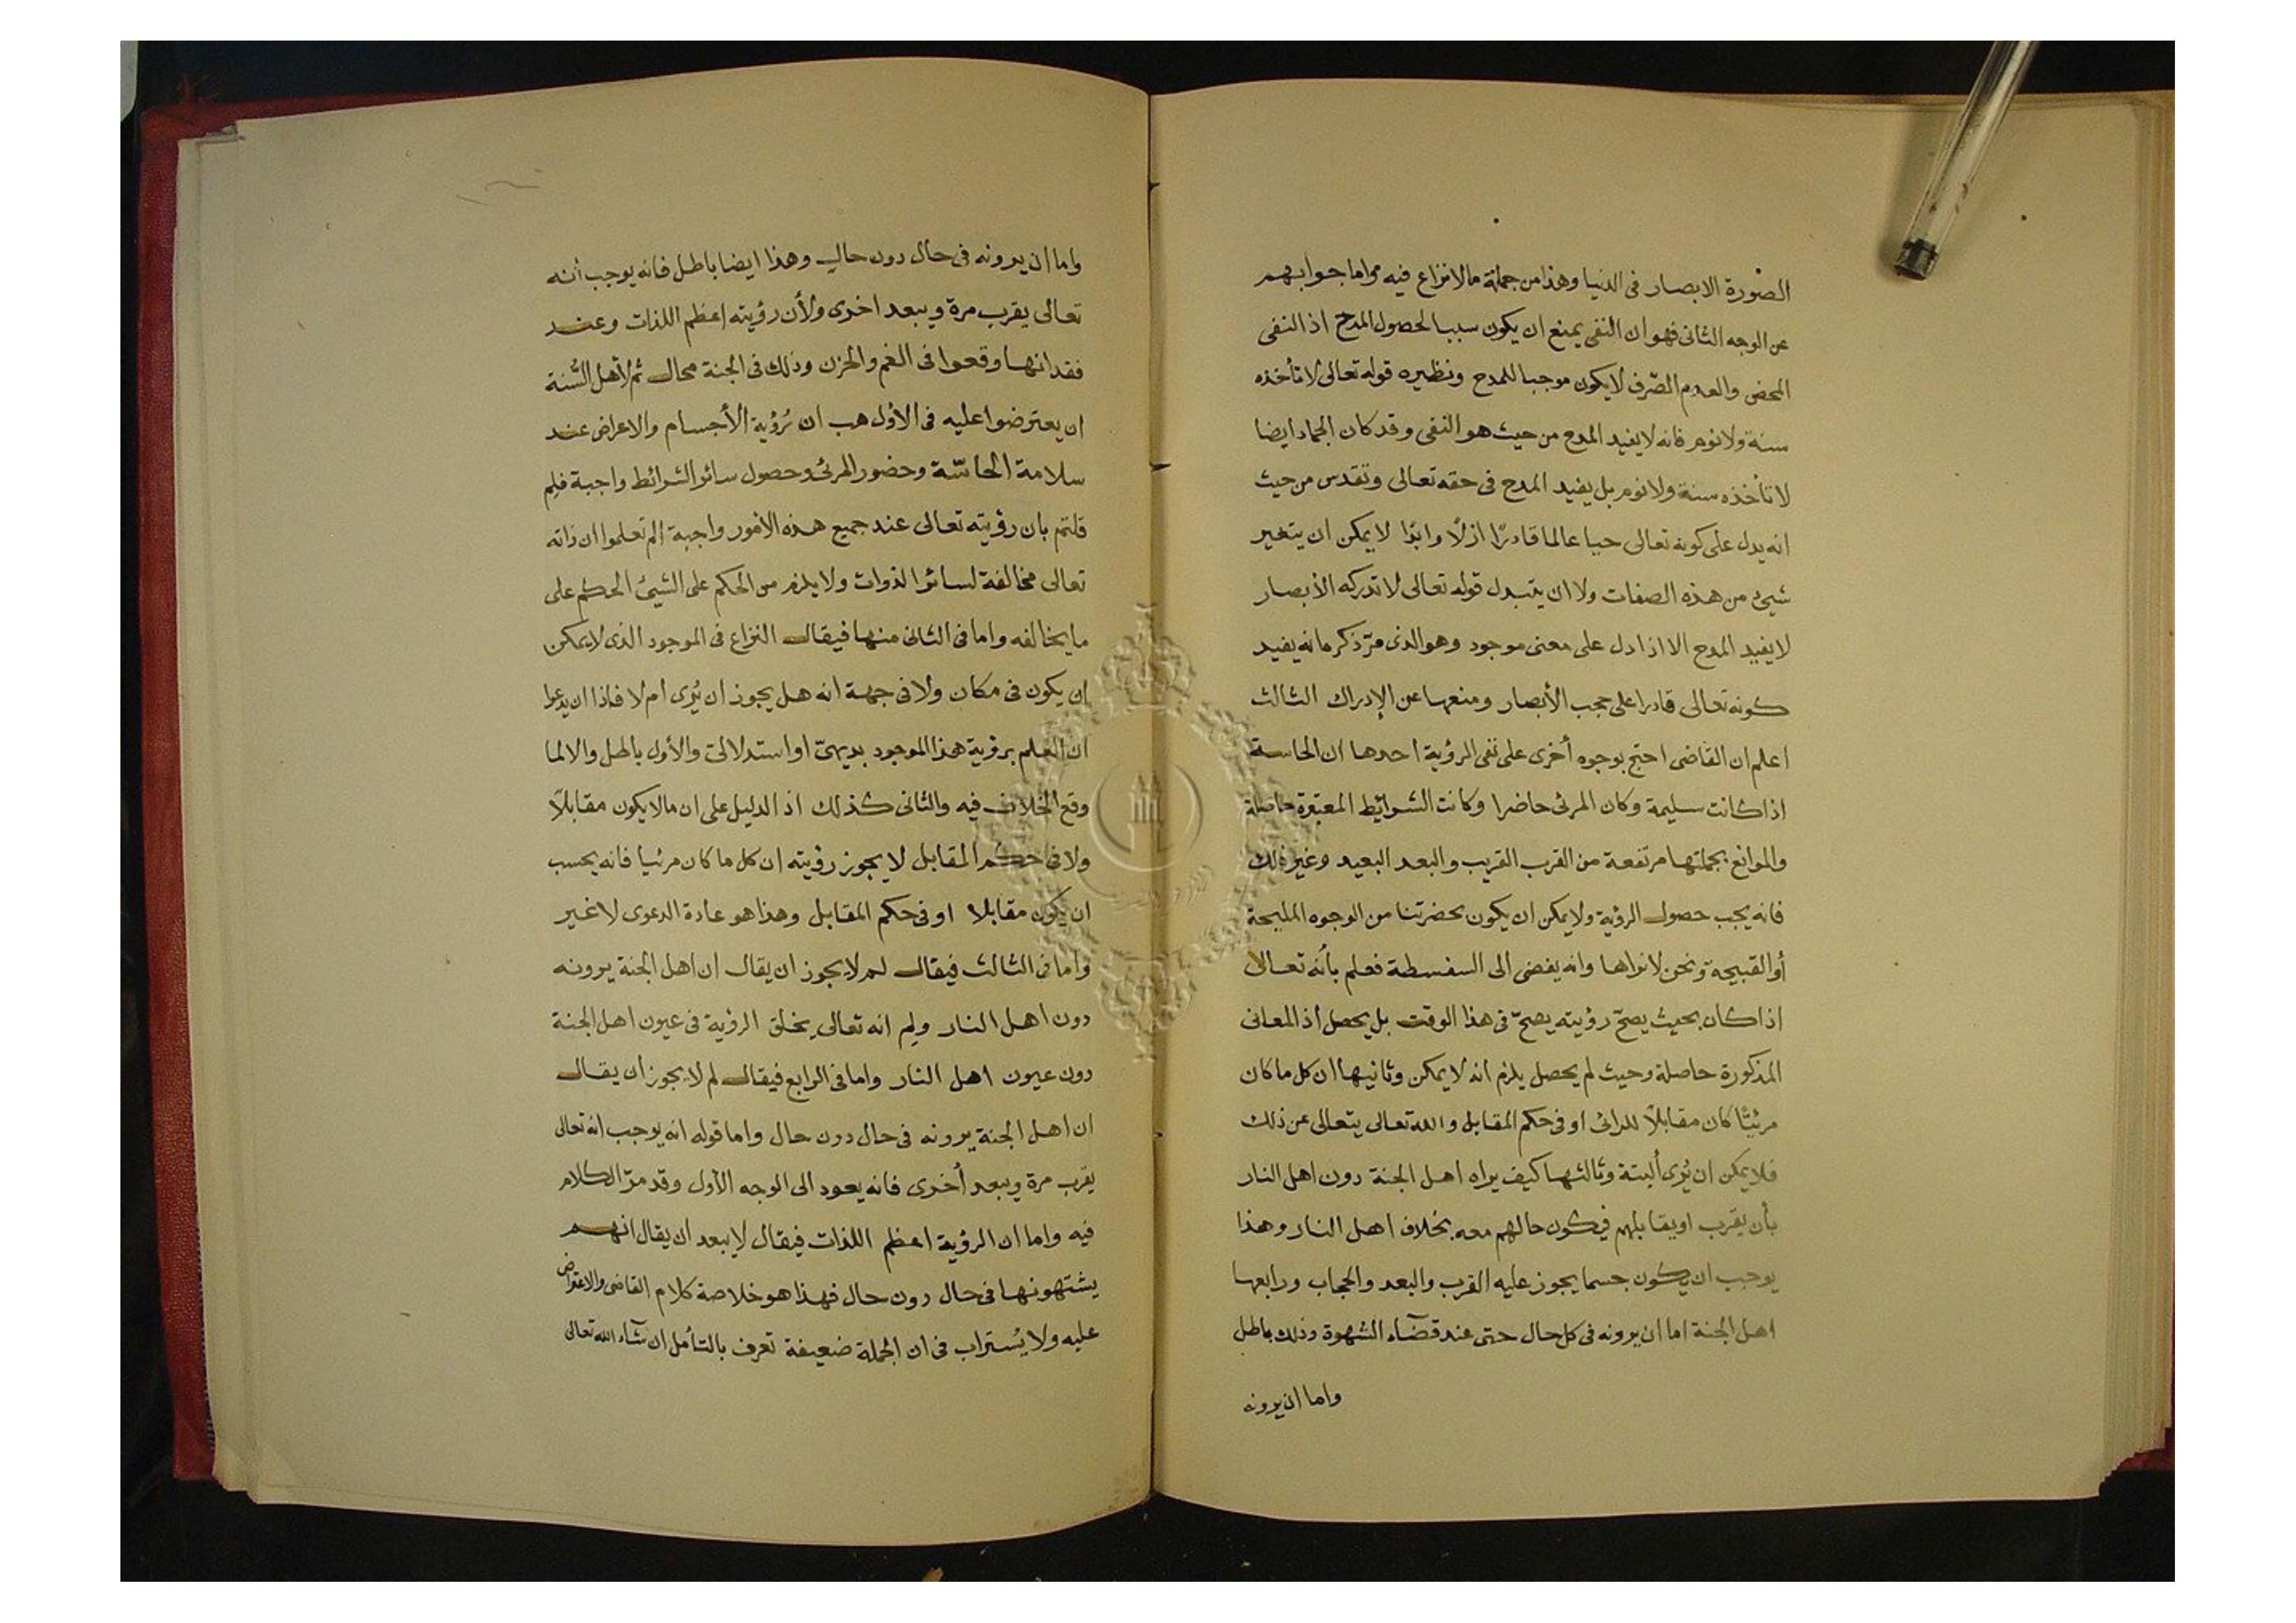 الصورة الابصار فى الدنيا وهذا من جملة مالا نزاع فيه واما جوابهم
عن الوجه الثانى فهو ان النفى يمنع ان يكون سببا لحصول المدح اذ النفى
المحض والعدم الصّرف لا يكون موجبا للمدح ونظيره قوله تعالى لا تأخذه
سنة ولا نوم فانه لا يفيد المدح من حيث هو النفى وقد كان الجماد ايضا
لا تأخذه سنة ولا نوم بل يفيد المدح فى حقه تعالى وتقدس من حيث
انه يدل على كونه تعالى حيا عالما قادرًا ازلًا وابدًا لا يمكن ان يتغير
شيئ من هذه الصفات ولا ان يتبدل قوله تعالى لا تدركه الأبصار
لا يفيد المدح الا اذا دل على معنى موجود وهو الذى مرّ ذكره انه يفيد
كونه تعالى قادرا على حجب الأبصار ومنعها عن الإدراك الثالث
اعلم ان القاضى احتج بوجوه أخرى على نفى الرؤية احدها ان الحاسة
اذا كانت سليمة وكان المرئى حاضرا وكانت الشرائط المعتبرة حاصلة
والموانع بجملتها مرتفعة من القرب القريب والبعد البعيد وغير ذلك
فانه يجب حصول الرؤية ولا يمكن ان يكون بحضرتنا من الوجوه المليحة
أو القبيحة ونحن لا نراها وانه يفضى الى السفسطة فعلم بأنه تعالا
اذا كان بحيث يصحّ رؤيته يصحّ فى هذا الوقت بل يحصل اذ المعانى
المذكورة حاصلة وحيث لم يحصل يلزم انه لا يمكن وثانيها ان كل ما كان
مرئيًا كان مقابلًا للرائى او فى حكم المقابل والله تعالى يتعالى عن ذلك
فلا يمكن ان يُرى ألبتة وثالثها كيف يراه اهل الجنة دون اهل النار
بأن يقرب او يقابلهم فيكون حالهم معه بخلاف اهل النار وهذا
يوجب ان يكون جسما يجوز عليه القرب والبعد والحجاب ورابعها
اهل الجنة اما ان يرونه فى كل حال حتى عند قضآء الشهوة وذلك باطل
واما ان يرونه
واما ان يرونه فى حال دون حال وهذا ايضا باطل فانه يوجب أنه
تعالى يقرب مرة ويبعد اخرى ولأن رؤيته اعظم اللذات وعند
فقدانها وقعوا فى الغم والحزن وذلك فى الجنة محال ثم لأهل السُّنة
ان يعترضوا عليه فى الاول هب ان رُؤية الأجسام والاعراض عند
سلامة الحاسّة وحضور المرئى وحصول سائر الشرائط واجبة فلِم
قلتم بان رؤيته تعالى عند جميع هذه الأمور واجبة الم تعلموا ان ذاته
تعالى مخالفة لسائر الذوات ولا يلزم من الحكم على الشيئ الحكم على
ما يخالفه واما فى الثانى منها فيقال النزاع فى الموجود الذى لا يمكن
ان يكون فى مكان ولا فى جهة انه هل يجوز ان يُرى ام لا فاذا ان يدعوا
ان العلم برؤية هذا الموجود بديهىّ او استدلالىّ والأول باطل والا لما
وقع الخلاف فيه والثانى كذلك اذ الدليل على ان مالا يكون مقابلًا
ولا فى حكم المقابل لا يجوز رؤيته ان كل ما كان مرئيا فانه يحسب
ان يكون مقابلا او فى حكم المقابل وهذا هو عادة الدعوى لا غير
واما فى الثالث فيقال لم لا يجوز ان يقال ان اهل الجنة يرونه
دون اهل النار ولم انه تعالى يخلق الرؤية فى عيون اهل الجنة
دون عيون اهل النار واما فى الرابع فيقال لم لا يجوز ان يقال
ان اهل الجنة يرونه فى حال دون حال واما قوله انه يوجب انه تعالى
يقرب مرة ويبعد أخرى فانه يعود الى الوجه الأول وقد مرّ الكلام
فيه واما ان الرؤية اعظم اللذات فيقال لا يبعد ان يقال انهم
يشتهونها فى حال دون حال فهذا هو خلاصة كلام القاضى والاعتراض
عليه ولا يُستراب فى ان الجملة ضعيفة تعرف بالتأمل ان شآء الله تعالى